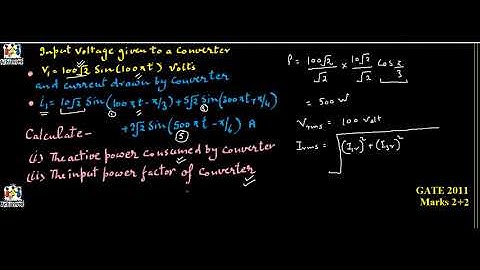 Input voltage given to a converter
• V₁ = 100√2 Sin(100πt) volts
and current drawn by converter
• i₁ = 10√2 Sin(100πt - π/3) + 5√2 Sin(300πt + π/4)
① ③
+ 2√2 Sin(500πt - π/6) A
⑤
Calculate -
(i) The active power consumed by converter
(ii) The input power factor of converter
P = 100√2/√2 × 10√2/√2 cos π/3
= 500 W
Vrms = 100 Volt
Irms = √(I₁r)² + (I₃r)²
GATE 2011
Marks 2+2